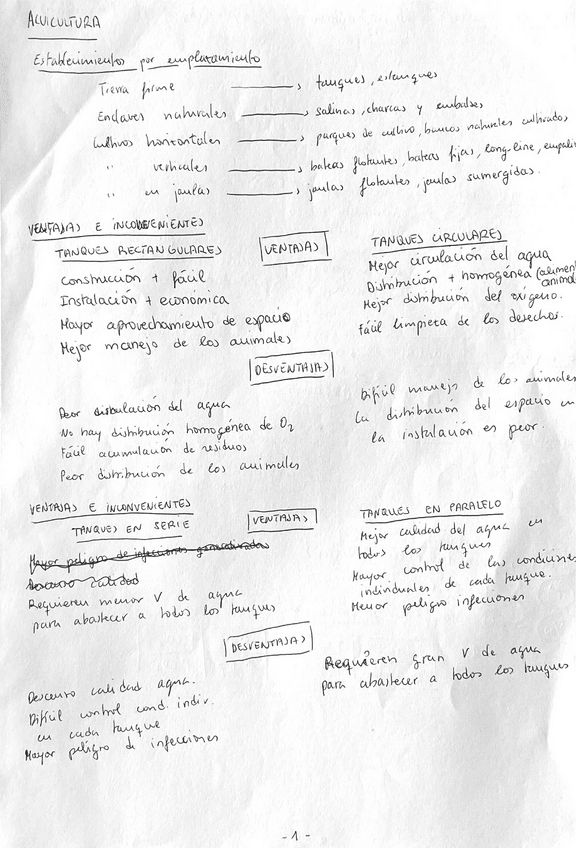 ACUICULTURA
Establecimientos por emplazamiento
Tierra firme ——→ tanques, estanques
Enclaves naturales ——→ salinas, charcas y embalses
Cultivos horizontales ——→ parques de cultivo, bancos naturales cultivados
" verticales ——→ bateas flotantes, bateas fijas, long-line, empali
" en jaulas ——→ jaulas flotantes, jaula sumergidas.
VENTAJAS E INCONVENIENTES
TANQUES RECTANGULARES
VENTAJAS
TANQUES CIRCULARES
Construcción + fácil
Instalación + económica
Mayor aprovechamiento de espacio
Mejor manejo de los animales
Mejor circulación del agua
Distribución + homogénea (alimen
animal
Mejor distribución del oxígeno.
Fácil limpieza de los desechos.
DESVENTAJAS
Peor distribulación del agua
No hay distribución homogénea de O2
Fácil acumulación de residuos
Peor distribución de los animales
Difícil manejo de los animales
La distribución del espacio en
la instalación es peor.
VENTAJAS E INCONVENIENTES
TANQUES EN SERIE
VENTAJAS
TANQUES EN PARALELO
Mayor peligro de infecciones generalizadas
Descenso calidad
Requieren menor V de agua
para abastecer a todos los tanques
Mejor calidad del agua en
todos los tanques
Mayor control de las condiciones
individuales de cada tanque.
Menor peligro infecciones
DESVENTAJAS
Descenso calidad agua.
Difícil control cond. indiv.
en cada tanque
Mayor peligro de infecciones
Requieren gran V de agua
para abastecer a todos los tanques
-1-